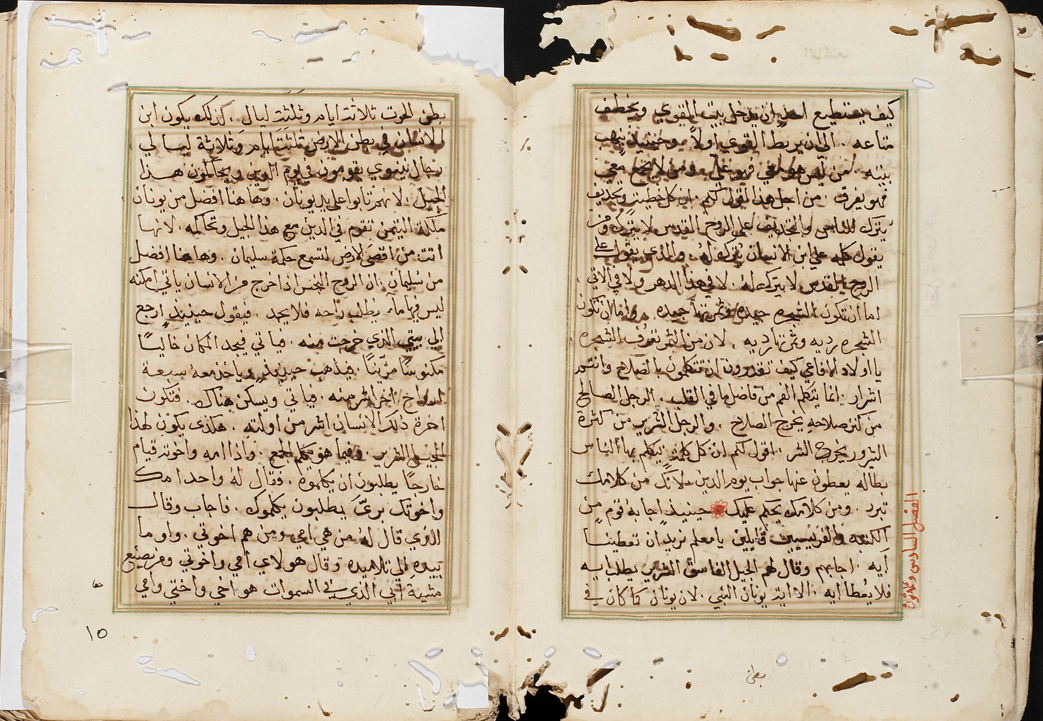 كيف يستطيع احد ان يدخل بيت القوي ويخطف
متاعه . الا ان يربط القوي اولاً . وحينيذ ينهب
بيته . من ليس هو معي فهو علي . ومن لا يجمع معي
فهو يفرق . من اجل هذا اقول لكم ان كل خطيه وتجديف
يترك للناس والتجديف على الروح القدس لا يترك ومن
يقول كلمه على ابن الانسان يترك له . والذي يقول على
الروح القدس لا يترك له . لا في هذا الدهر ولا في الاتي .
اما ان تكون الشجره جيده وثمرتها جيده . واما ان تكون
الشجره رديه وثمرتها رديه . لان من الثمر تعرف الشجره .
يا اولاد الافاعي كيف تقدرون ان تتكلمون بالصلاح وانتم
اشرار . انما يتكلم الفم من فاضل ما في القلب . الرجل الصالح
من كنز صلاحه يخرج الصلاح . والرجل الشرير من كثرة
الشرور يخرج الشر . اقول لكم ان كل كلمه يتكلم بها الناس
بطاله يعطون عنها جواب يوم الدين لانك من كلامك
تبرر . ومن كلامك يحكم عليك حينيذ اجابه قوم من
الكتبه والفريسيين قايلين . يا معلم نريد ان تعطينا
ايه . اجابهم وقال لهم الجيل الفاسق الشرير يطلب ايه
فلا يعطا ايه . الا اية يونان النبي . لان يونان كما كان في
الفصل السادس وثلاثون
بطن
بطن الحوت ثلاثة ايام وثلثة ليال . كذلك يكون ابن
الانسان في بطن الارض ثلثة ايام وثلاثة ليالي
رجال نينوي يقومون في يوم الدين ويحاكمون هذا
الجيل . لانهم تابوا على يد يونان . وها هنا افضل من يونان
ملكة التيمن تقوم في الدين مع هذا الجيل وتحاكمه . لانها
اتت من اقصى الارض لتسمع حكمة سليمان . وها هنا افضل
من سليمان . ان الروح النجس اذا خرج من الانسان ياتي امكنه
ليس فيها ماء يطلب راحه فلا يجد . فيقول حينيذ ارجع
الى بيتي الذي خرجت منه . فياتي فيجد المكان خالياً
مكنوساً مزيناً . فيذهب حينيذ وياخذ معه سبعة
ارواح اخر اشر منه . فياتي ويسكن هناك . فتكون
اخرة ذلك الانسان اشر من اولته . هكذى يكون لهذا
الجيل الشرير . وفيما هو يكلم الجمع . واذا امه واخوته قيام
خارجاً يطلبون ان يكلموه . فقال له واحد امك
واخوتك براً يطلبون يكلموك . فاجاب وقال
للذي قال له من هي امي ومن هم اخوتي . واوما
بيده الى تلاميذه وقال هولاي امي واخوتي ومن يصنع
مشية ابي الذي في السموات هو اخي واختي وامي
١٥